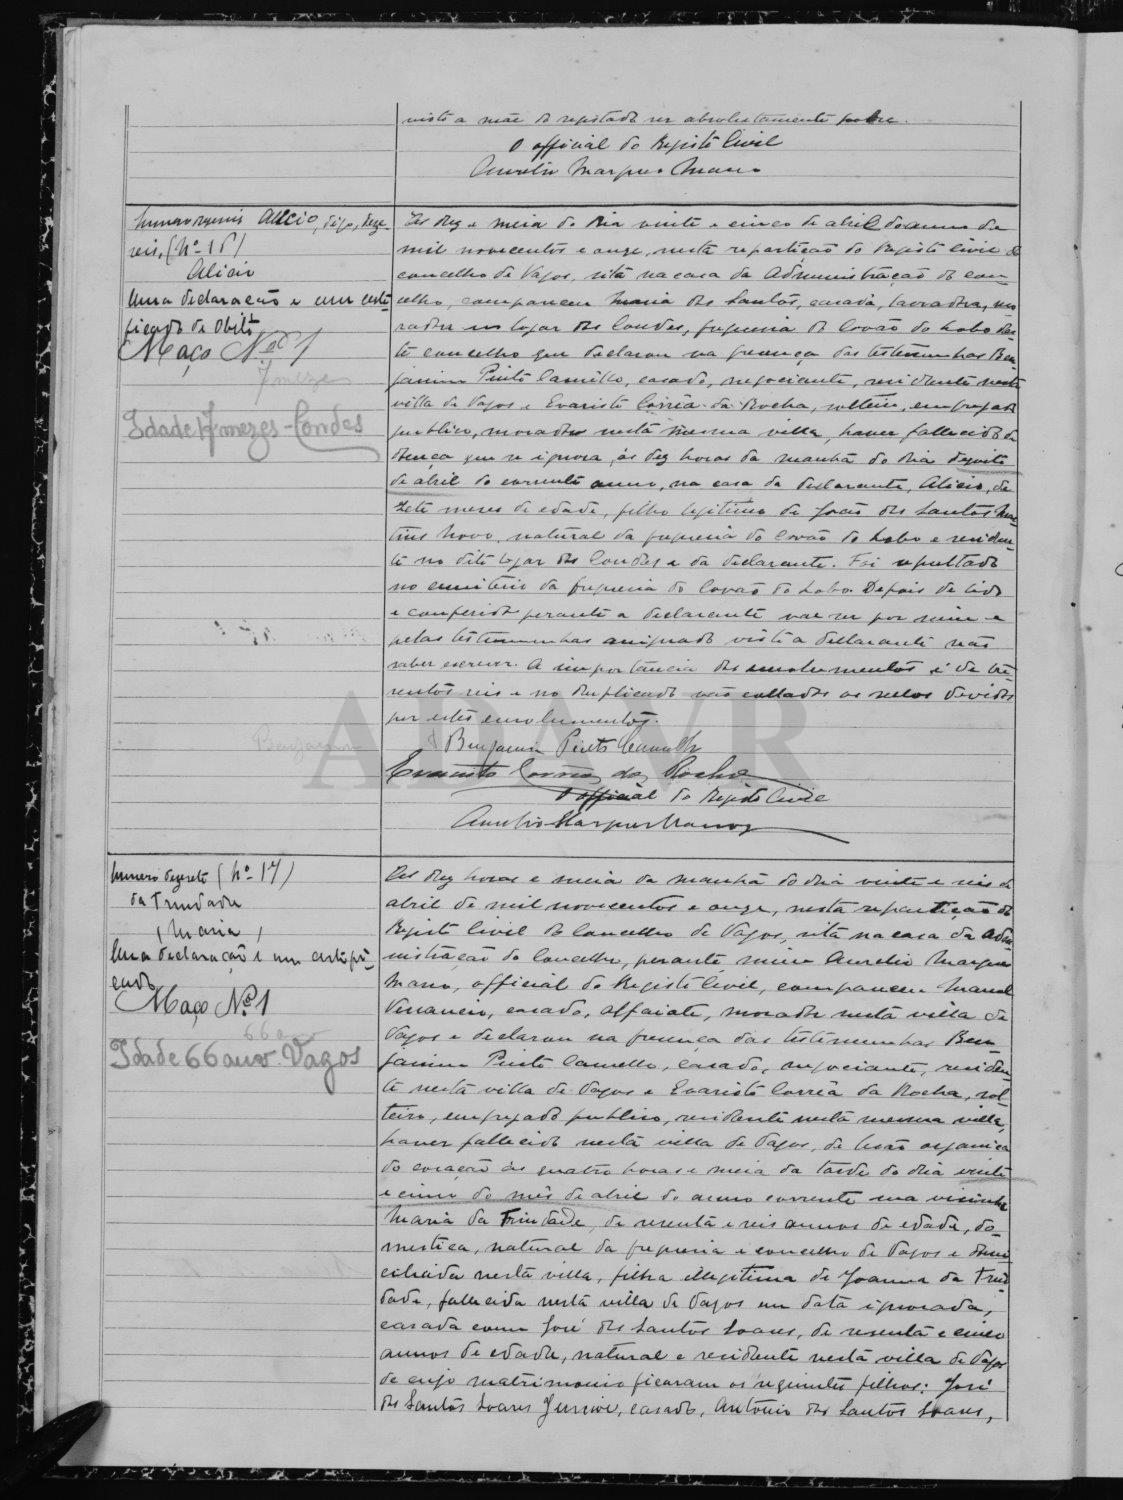 visto a mãe do registado ser absolutamente pobre.
O official do Registo Civil
Aurelio Marques Mano
Numero Alicio, digo, deze-
seis, (Nº 16)
Alicio
Uma declaração e um certi-
ficado de obito
Maço Nº 1
7 mezes
Idade 7 mezes - Condes
Ás dez e meia do dia vinte e cinco de abril do anno de
mil novecentos e onze, nesta repartição do Registo Civil do
concelho de Vagos, sita na casa da Administração do con-
celho, compareceu Maria dos Santos, casada, lavradora, mo-
radora no logar dos Condes, freguesia de Covão do Lobo des-
te concelho que declarou na presença das testemunhas Ben-
jamim Pinto Camello, casado, negociante, residente nesta
villa de Vagos e Evaristo Corrêa da Rocha, solteiro, empregado
publico, morador nesta mesma villa, haver fallecido de
doença que se ignora, ás dez horas da manhã do dia dezoito
de abril do corrente anno, na casa da declarante, Alicio, de
sete meses de edade, filho legitimo de João dos Santos Mar-
tins Novo, natural da freguesia do Covão do Lobo e residen-
te no dito logar dos Condes e da declarante. Foi sepultado
no cemiterio da freguesia do Covão do Lobo. Depois de lido
e conferido perante a declarante vae ser por mim e
pelas testemunhas assignado visto a declarante não
saber escrever. A importancia dos emolumentos é de tre-
sentos reis e no duplicado vão collados os sellos devidos
por estes emolumentos.
Benjamim
Benjamim Pinto Camello
Evaristo Corrêa da Rocha
O official do Registo Civil
Aurelio Marques Mano
Numero dezesete (Nº 17)
da Trindade
(Maria)
Uma declaração e um certifi-
cado
Maço Nº 1
66 an
Idade 66 annos. Vagos
Ás dez horas e meia da manhã do dia vinte e seis de
abril de mil novecentos e onze, nesta repartição do
Registo Civil do Concelho de Vagos, sita na casa da Admi-
nistração do Concelho, perante mim Aurelio Marques
Mano, official do Registo Civil, compareceu Manoel
Venancio, casado, alfaiate, morador nesta villa de
Vagos e declarou na presença das testemunhas Ben-
jamim Pinto Camello, casado, negociante, residen-
te nesta villa de Vagos e Evaristo Corrêa da Rocha, sol-
teiro, empregado publico, residente nesta mesma villa,
haver fallecido nesta villa de Vagos, de lesão organica
do coração ás quatro horas e meia da tarde do dia vinte
e cinco do mês de abril do anno corrente sua visinha
Maria da Trindade, de sesenta e seis annos de edade, do-
mestica, natural da freguesia e concelho de Vagos e domi-
ciliada nesta villa, filha illegitima de Joanna da Trin-
dade, fallecida nesta villa de Vagos em data ignorada,
casada com José dos Santos Soares, de sesenta e cinco
annos de edade, natural e residente nesta villa de Vagos
de cujo matrimonio ficaram os seguintes filhos: José
dos Santos Soares Junior, casado, Antonio dos Santos Soares,
ADAVR